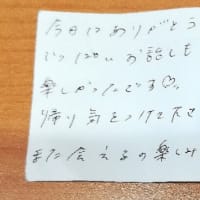 今日はありがとう
お話しも
楽しかったです♡。
帰り気をつけて下さ
また会えるの楽しみ